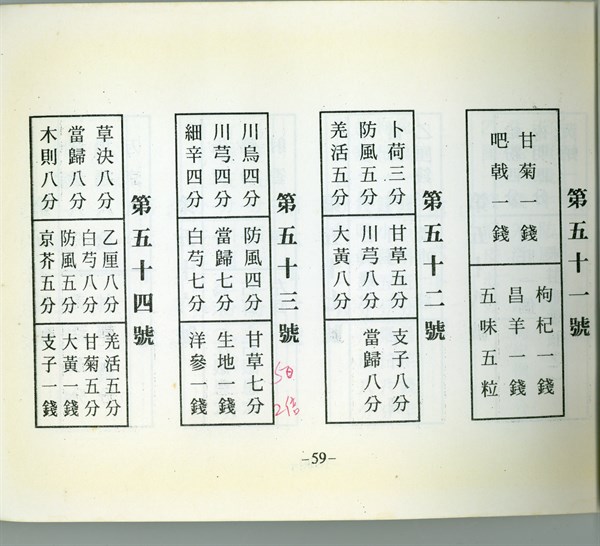 第五十一號
甘菊一錢
吧戟一錢
枸杞一錢
昌羊一錢
五味五粒
第五十二號
卜荷三分
防風五分
羌活五分
甘草五分
川芎八分
大黃八分
支子八分
當歸八分
第五十三號
川烏四分
川芎四分
細辛四分
防風四分
當歸七分
白芍七分
甘草七分
生地一錢
洋參一錢
5日
2倍
第五十四號
草決八分
當歸八分
木則八分
乙厘八分
白芍八分
防風五分
京芥五分
羌活五分
甘菊五分
大黃一錢
支子一錢
–59–